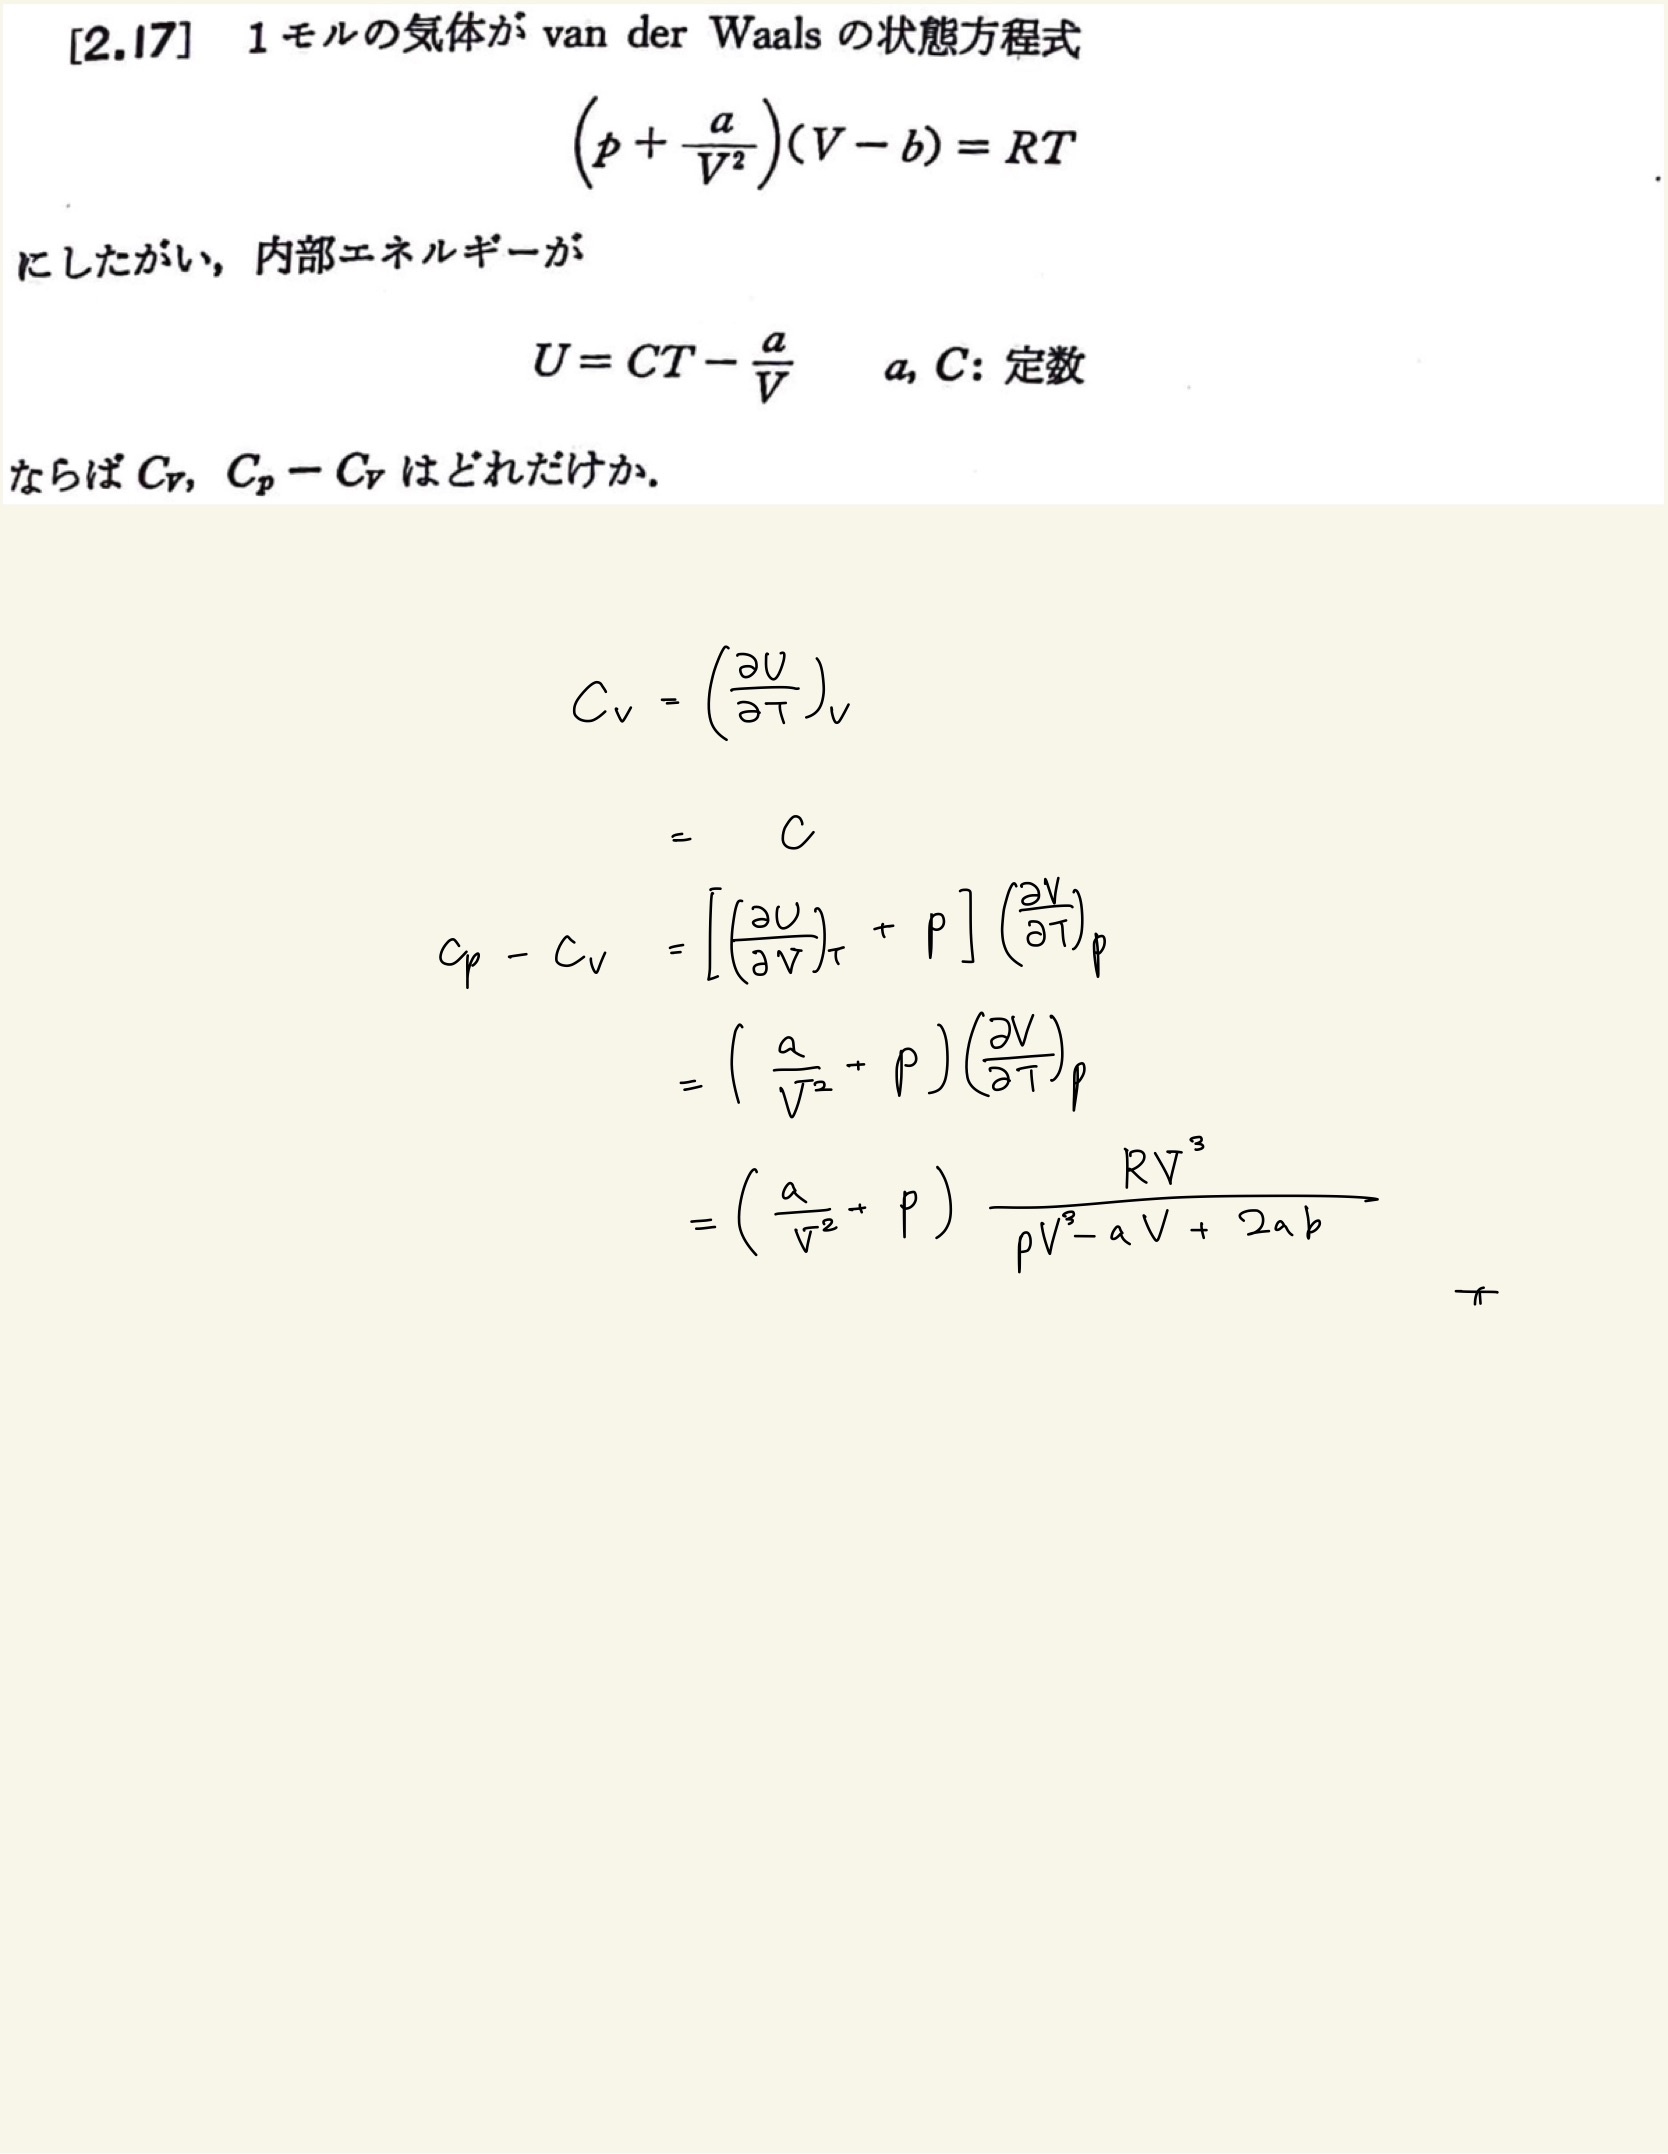 [2.17] 1モルの気体が van der Waals の状態方程式
(p + a/V²)(V − b) = RT
にしたがい，内部エネルギーが
U = CT − a/V a, C: 定数
ならば C_V, C_p − C_V はどれだけか．
C_V = (∂U/∂T)_V
= C
C_p − C_V = [(∂U/∂V)_T + p] (∂V/∂T)_p
= (a/V² + p)(∂V/∂T)_p
= (a/V² + p) RV³/(pV³ − aV + 2ab)